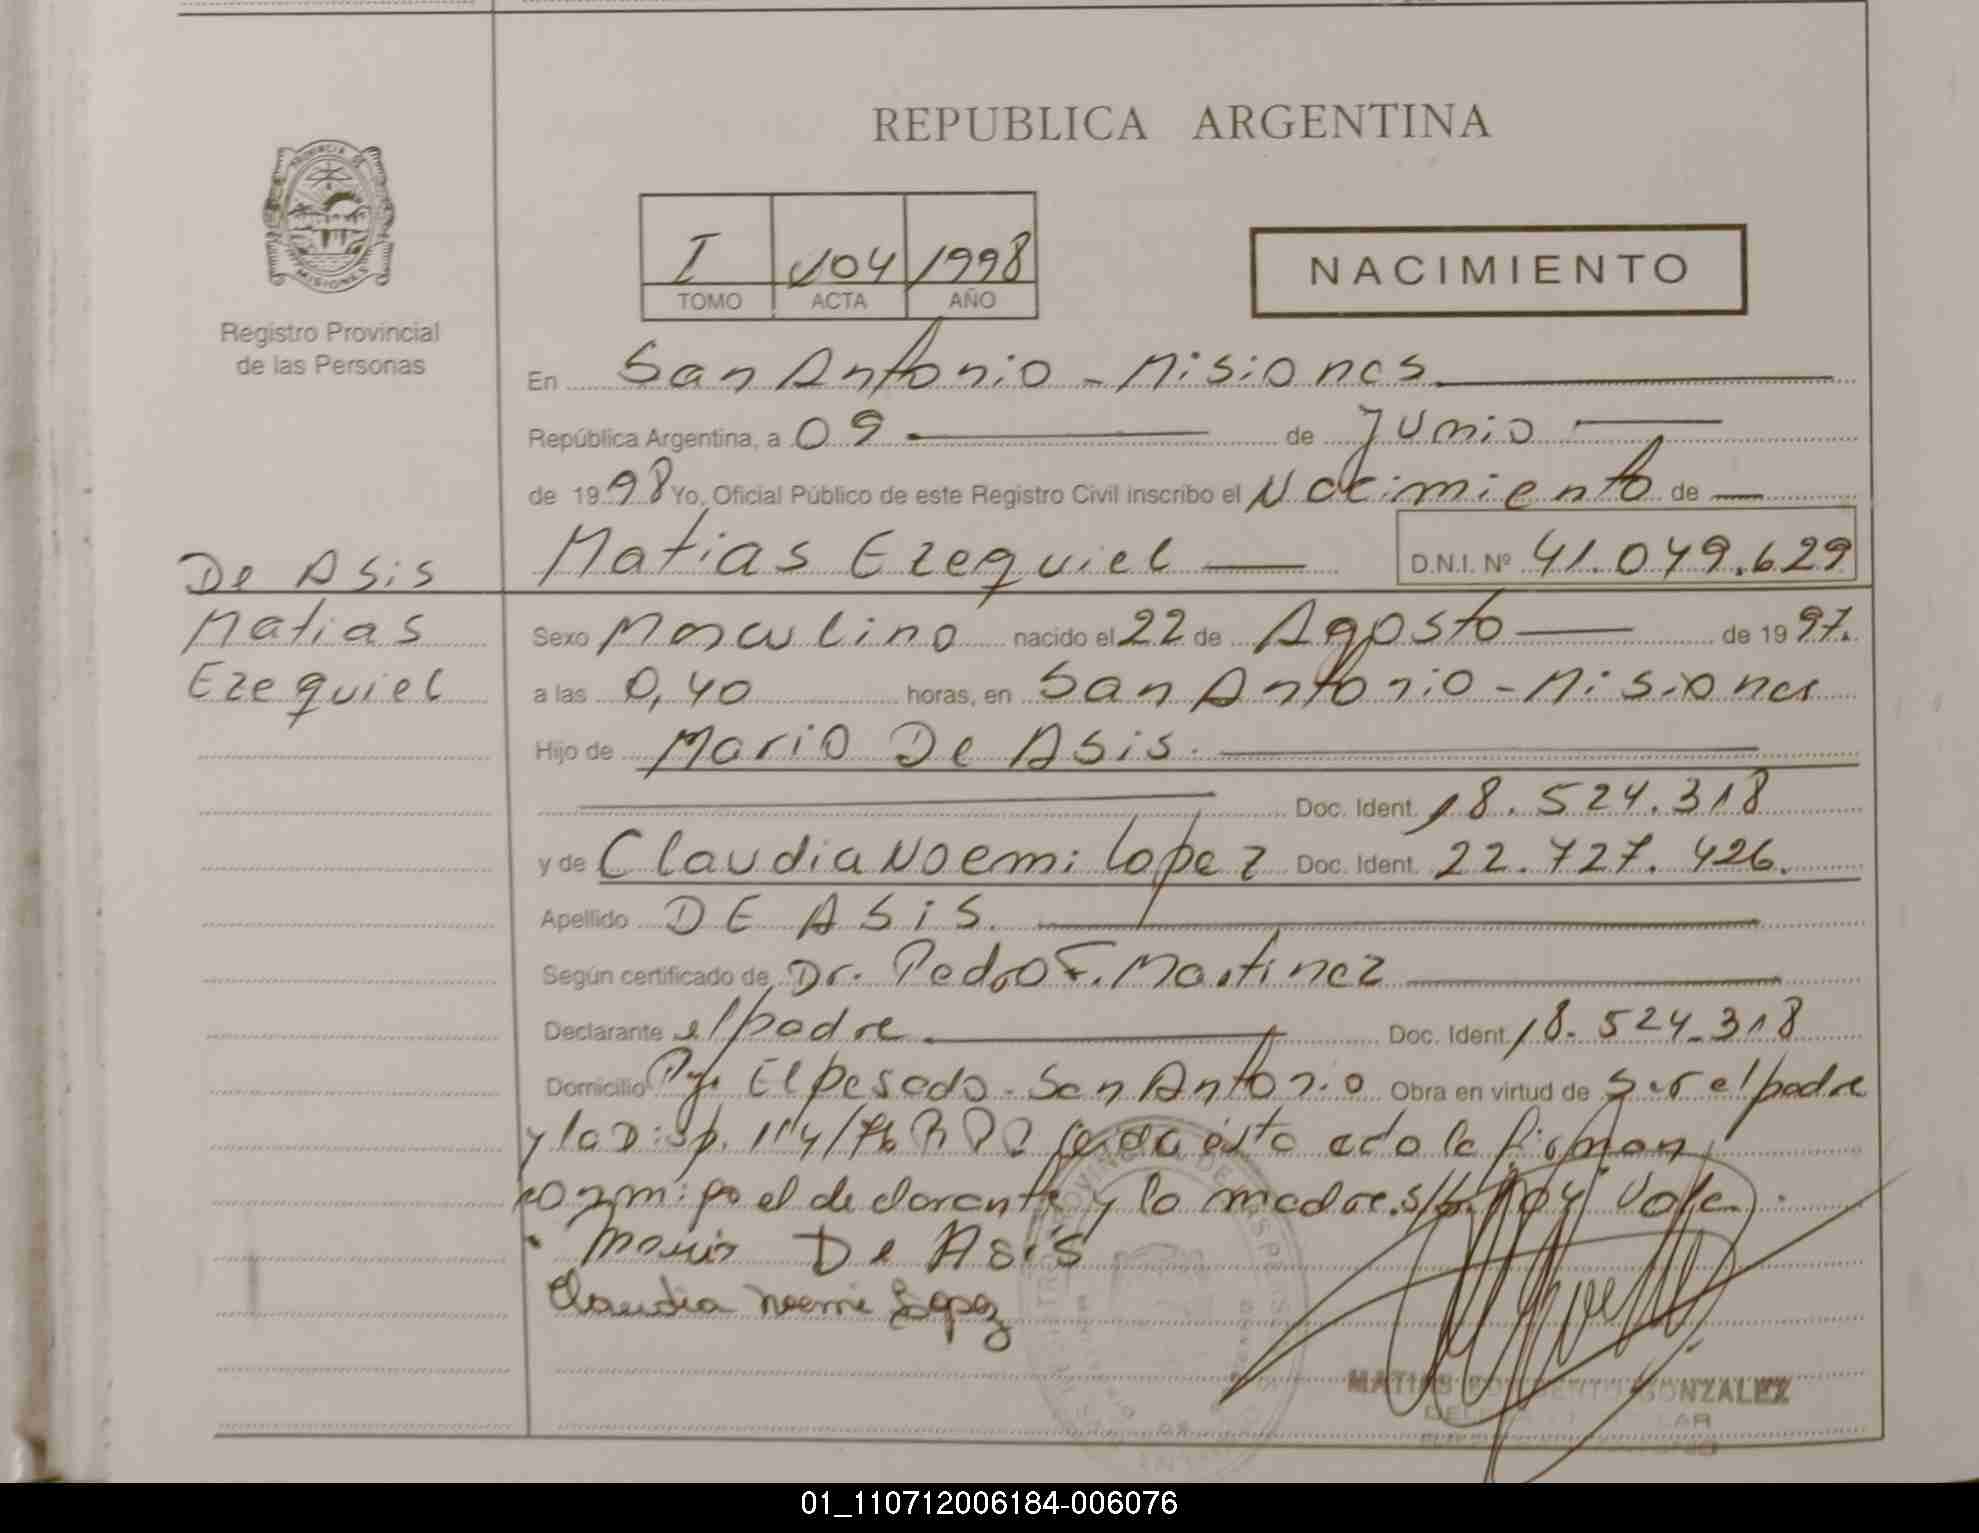 REPUBLICA ARGENTINA
PROVINCIA DE
MISIONES
Registro Provincial
de las Personas
I 104 1998
TOMO ACTA AÑO
NACIMIENTO
En San Antonio - Misiones
República Argentina, a 09 de Junio
de 1998 Yo, Oficial Público de este Registro Civil inscribo el Nacimiento de
Matias Ezequiel D.N.I. Nº 41.079.629
De Asis
Matias
Ezequiel
Sexo Masculino nacido el 22 de Agosto de 1997.
a las 0,40 horas, en San Antonio - Misiones
Hijo de Mario De Asis.
Doc. Ident. 18.524.318
y de Claudia Noemi Lopez Doc. Ident. 22.727.426.
Apellido DE ASiS.
Según certificado de Dr. Pedro F. Martinez
Declarante el padre Doc. Ident. 18.524.318
Domicilio Pje. El pesado - San Antonio Obra en virtud de ser el padre
y la Disp. 114/76 leida esta acta la firman
conmigo el declarante y la madre. Vale.
Mario De Asis
Claudia Noemi Lopez
MATIAS GONZALEZ
01_110712006184-006076